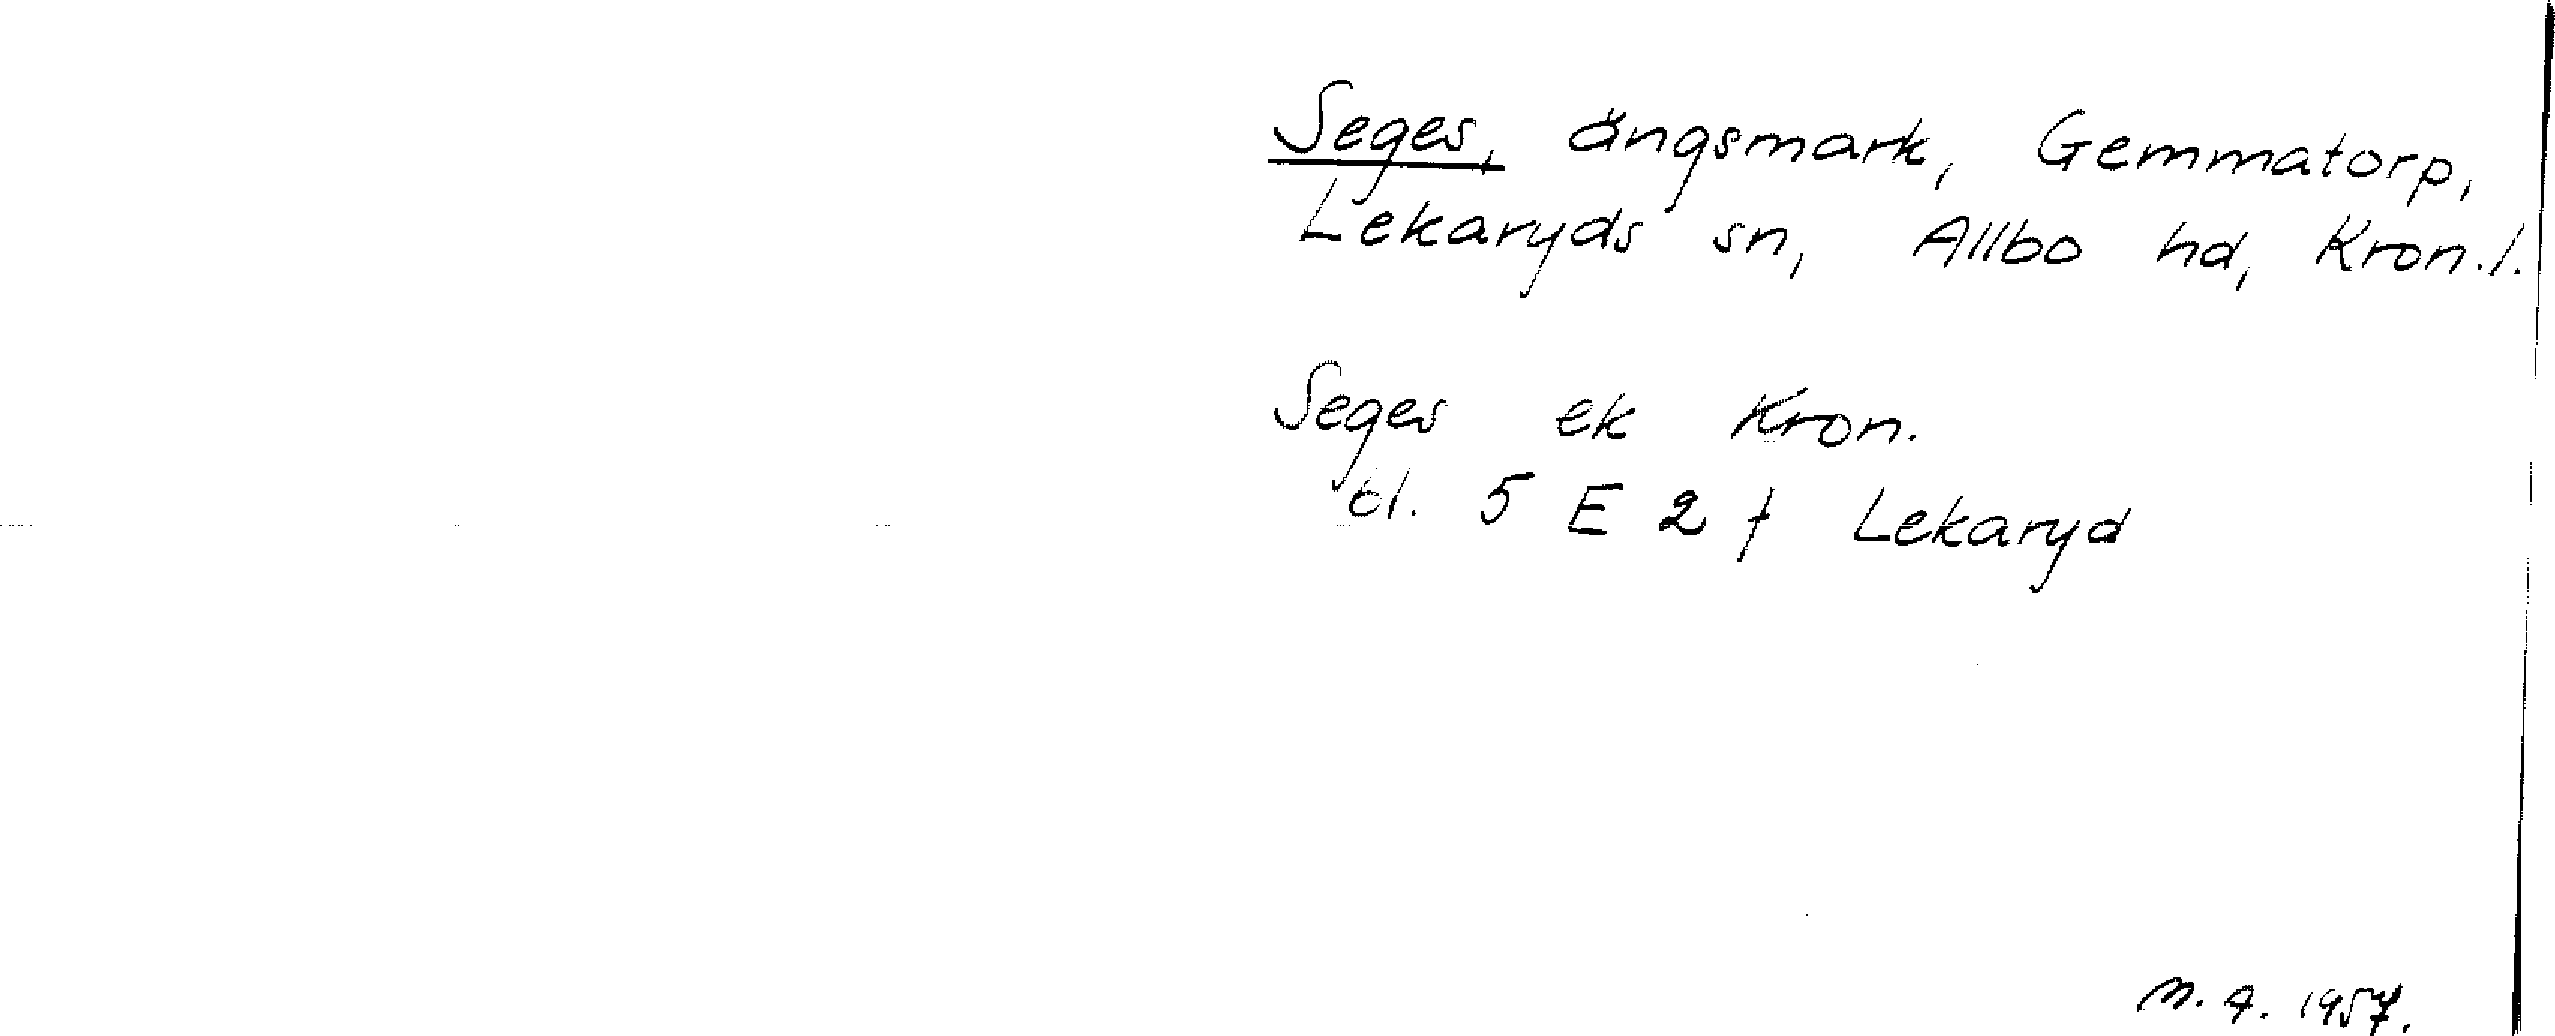 Seges, ängsmark, Gemmatorp,
Lekaryds sn, Allbo hd, Kron.l.
Seges ek Kron.
bl. 5 E 2 f Lekaryd
M. A. 1957.